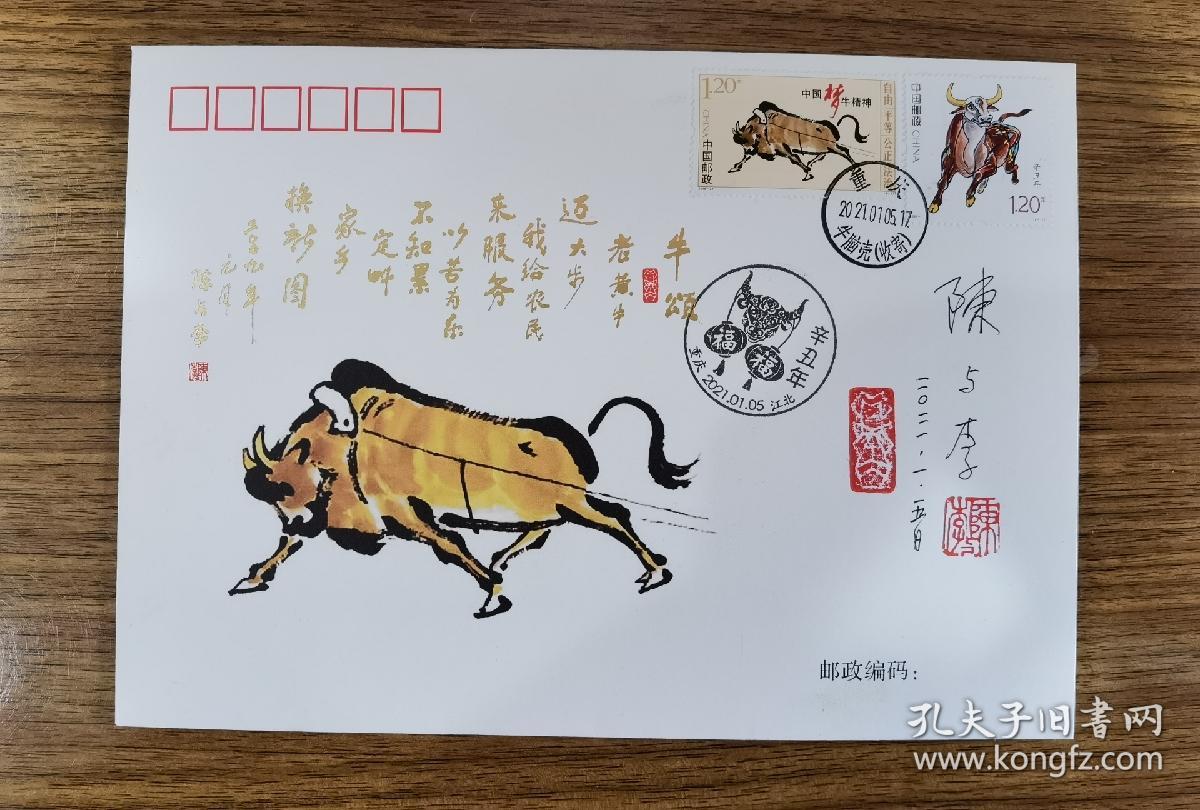 1.20元
中国梦牛精神
自由 平等 公正 法
CHINA 中国邮政
中国邮政 CHINA
辛丑年
1.20元
重庆
2021.01.05.17
牛脑壳(收寄)
福
福
辛丑年
重庆 2021.01.05 江北
牛颂
老黄牛
迈大步
我给农民
来服务
以苦为乐
不知累
定叫
家乡
换新图
元月
陈与李
二〇二一·一·五日
邮政编码:
孔夫子旧书网
www.kongfz.com